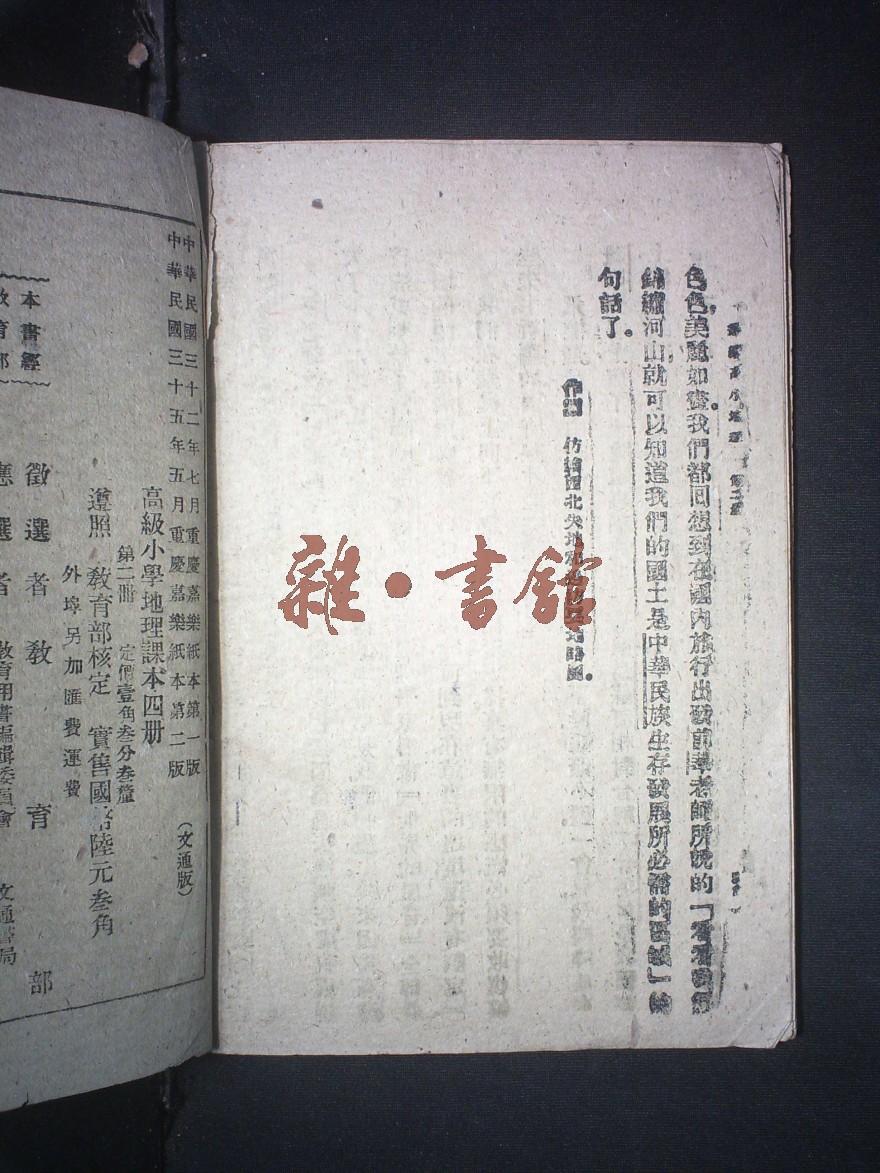 色色,美麗如畫.我們都回想到在國內旅行出發前,華老師所說的「看看我們
錦繡河山,就可以知道我們的國土是中華民族生存發展所必需的區域」的
句話了.
作業 仿繪西北
雜·書館
中華民國三十二年七月重慶嘉樂紙本第一版
中華民國三十五年五月重慶嘉樂紙本第二版
(文通版)
高級小學地理課本四册
第二册 定價壹角叁分叁釐
遵照 教育部核定 實售國幣陸元叁角
外埠另加匯費運費
徵選者教育部
本書經
教育部
應選者
教育用書編輯委員會
文通書局